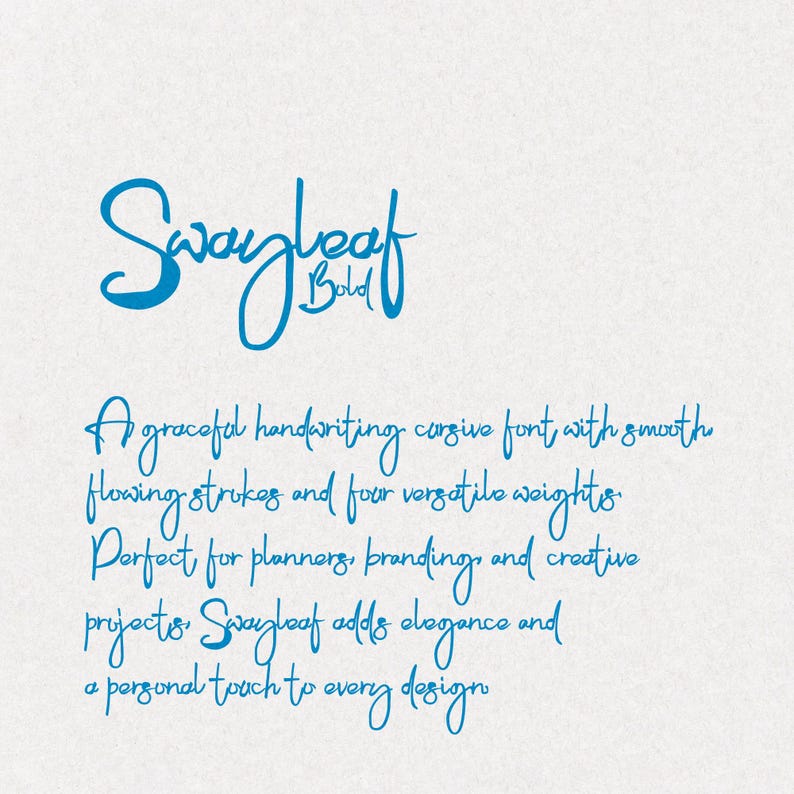 Swayleaf
Bold
A graceful handwriting cursive font with smooth,
flowing strokes and four versatile weights.
Perfect for planners, branding, and creative
projects, Swayleaf adds elegance and
a personal touch to every design.